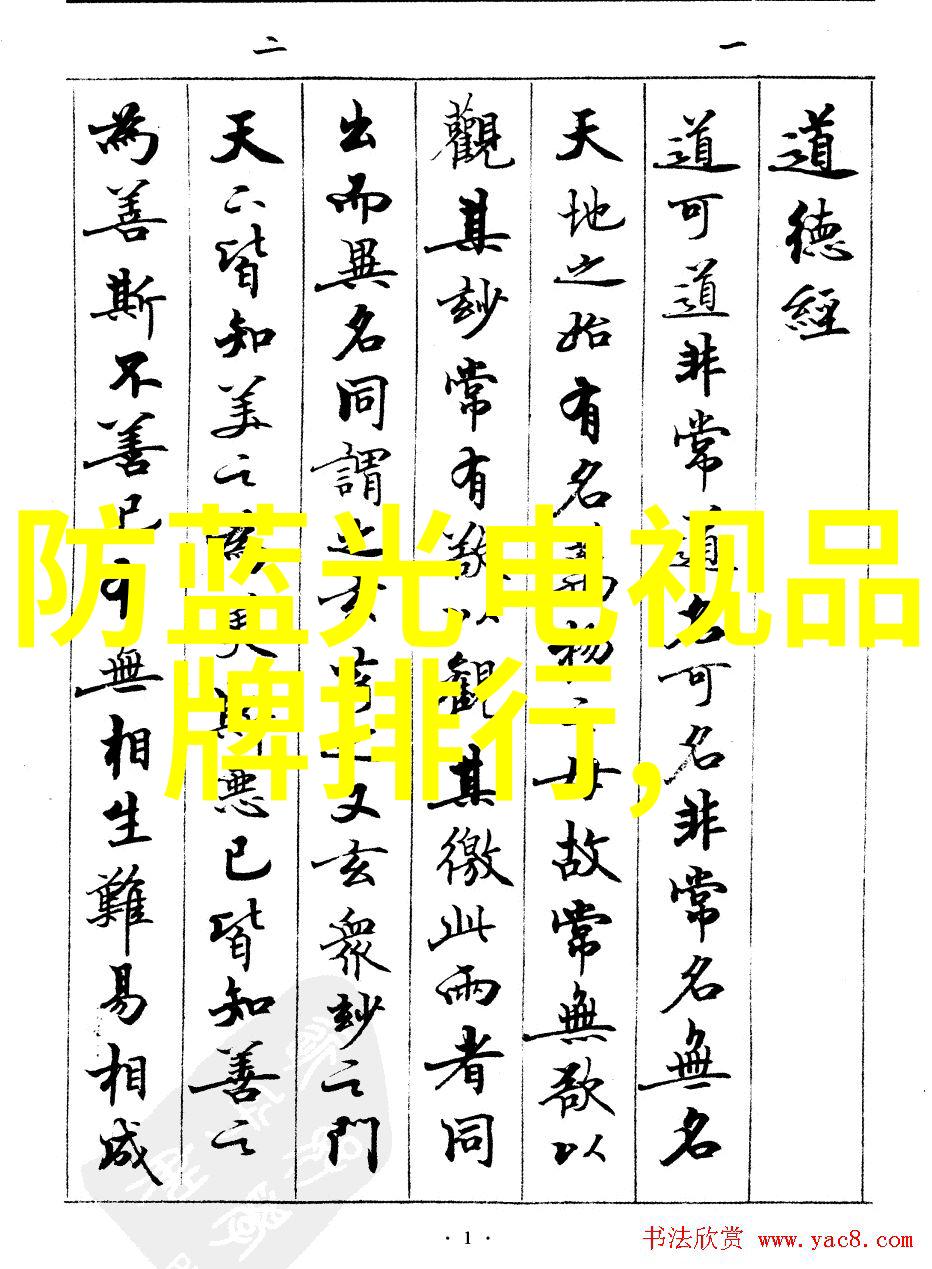 一
二
道德經
道可道非常道名可名非常名無名
天地之始有名萬物之母故常無欲以
觀其玅常有欲以觀其徼此兩者同
出而異名同謂之玄玄之又玄衆玅之門
天下皆知美之為美斯惡已皆知善之
為善斯不善已有無相生難易相成
防蓝光电视品
牌排行,
· 1 ·
书法欣赏 www.yac8.com